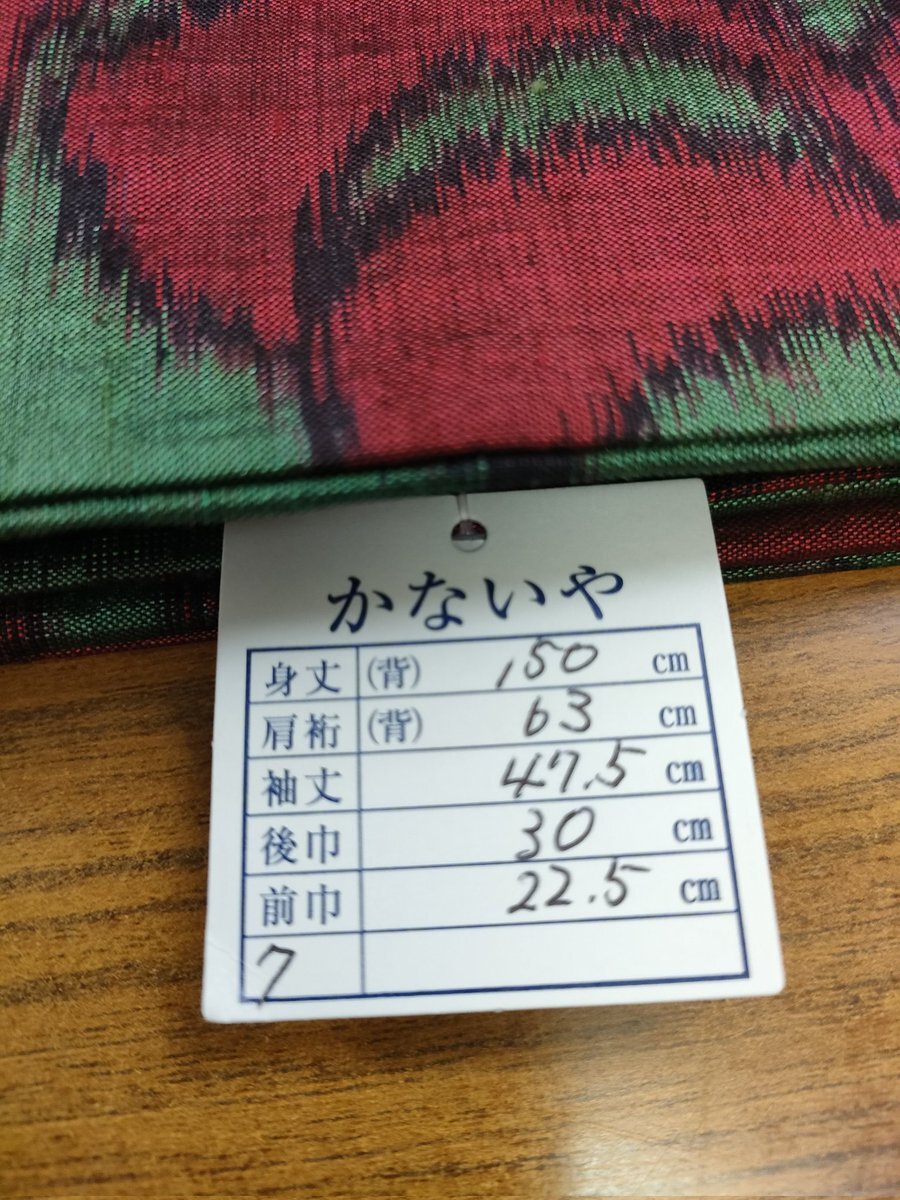 かないや
身丈 (背) 150 cm
肩裄 (背) 63 cm
袖丈 47.5 cm
後巾 30 cm
前巾 22.5 cm
7